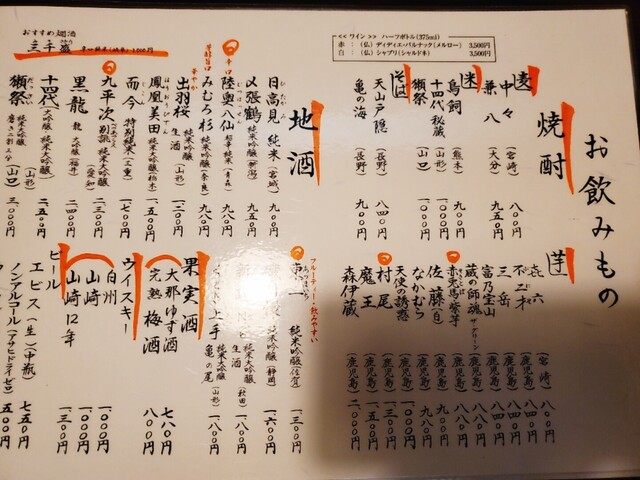 お飲みもの
焼酎
麦
中々 (宮崎) 八〇〇円
兼八 (大分) 九五〇円
米
鳥飼 (熊本) 九〇〇円
十四代 秘蔵 (山形) 一〇〇〇円
獺祭 (山口) 一〇〇〇円
そば
天山戸隠 (長野) 八四〇円
亀の海 (長野) 九〇〇円
芋
㐂六 (宮崎) 八〇〇円
不二才 (鹿児島) 八八〇円
三岳 (鹿児島) 八八〇円
富乃宝山 (鹿児島) 八八〇円
蔵の師魂 ザ・グリーン (鹿児島) 八八〇円
赤兎馬 紫芋 (鹿児島)
佐藤 (白) (鹿児島)
なかむら (鹿児島) 九八〇円
天使の誘惑 (鹿児島)
村尾 (鹿児島)
魔王 (鹿児島) 一五〇〇円
森伊蔵 (鹿児島) 二〇〇〇円
<< ワイン >> ハーフボトル(375ml)
赤:(仏) ディディエ・バルナック(メルロー) 3,500円
白:(仏) シャブリ(シャルドネ) 3,500円
地酒
日高見 純米 (宮城) 九五〇円
〆張鶴 純米吟醸 (新潟) 九〇〇円
辛口
陸奥八仙 超辛純米 (青森) 九八〇円
みむろ杉 純米吟醸 (奈良) 九八〇円
出羽桜 生酒 (山形) 一二〇〇円
鳳凰美田 純米大吟醸 (栃木) 一五〇〇円
而今 特別純米 (三重) 一七〇〇円
九平次 別誂 純米大吟醸 (愛知) 二三〇〇円
黒龍 龍 大吟醸 (福井) 二四〇〇円
十四代 大吟醸 純米大吟醸 (山形) 二五〇〇円
獺祭 純米大吟醸 磨き二割三分 (山口) 三〇〇〇円
おすすめ燗酒
三千蔵
フルーティー・飲みやすい
純米吟醸 (佐賀) 一三〇〇円
純米吟醸 (静岡) 一六〇〇円
生酒 純米大吟醸 (秋田) 一八〇〇円
くどき上手 純米大吟醸 亀の尾 (山形) 一八〇〇円
果実酒
大那ゆず酒 七八〇円
完熟梅酒 八〇〇円
ウイスキー
白州 一〇〇〇円
山崎 一〇〇〇円
山崎12年 一三〇〇円
ビール
エビス(生)(中瓶) 七五〇円
ノンアルコール(アサヒドライゼロ) 五〇〇円